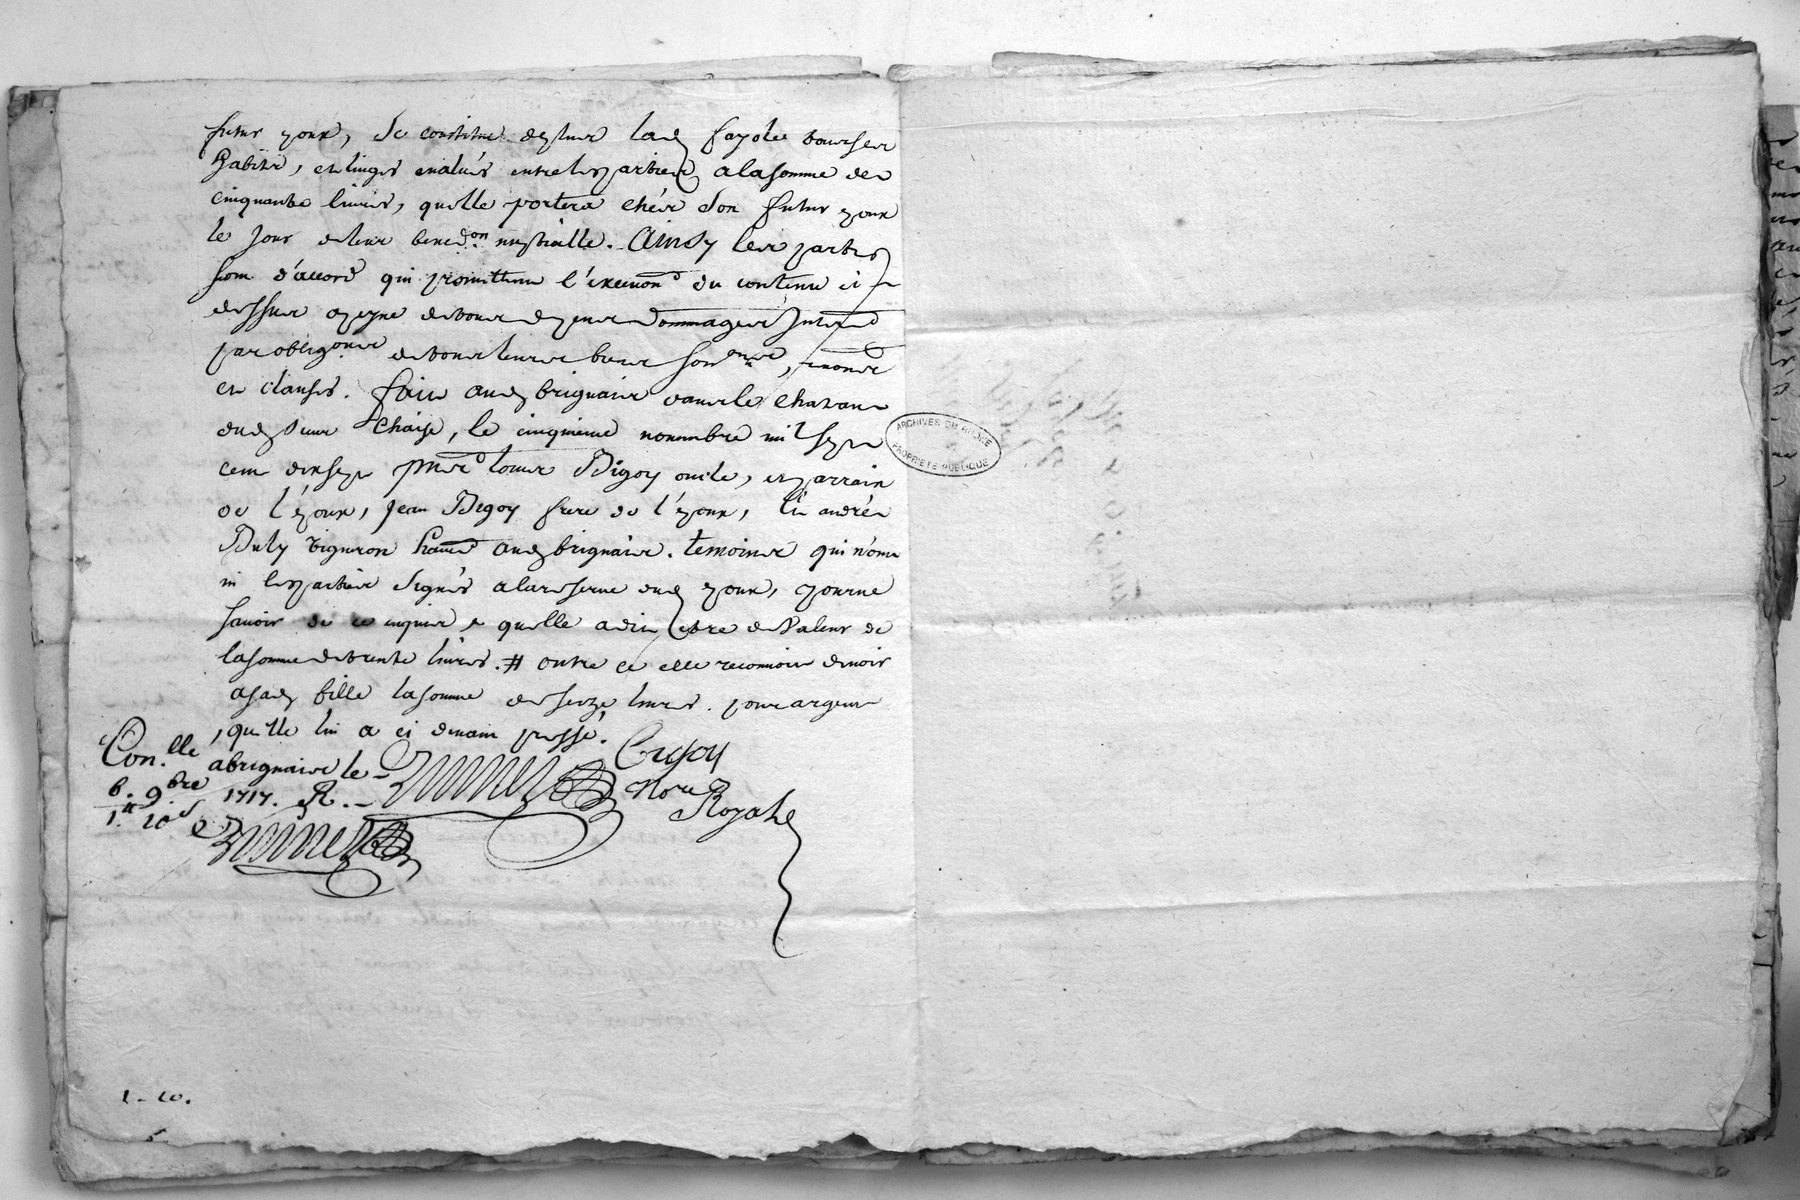 futur epoux, se constitue de plus lad fayole tous ses
habits, et linges evalués entre les parties, a la somme de
cinquante livres, quelle portera chés son futur epoux
le jour de leur bened.on nuptialle. Ainsy les parties
sont d'accord qui promettent l'execuon du contenu ci
dessus a peyne de tous depens dommages interests
par obligons de tous leurs biens
et clauses. fait aud brignais dans le
dud sieur Chaize, le cinquieme novembre mil sept
cent dix sept pnts louis Bigoy oncle, et parrain
de l'epoux, Jean Bigoy frere de l'epoux, andré
Buly vigneron aud brignais. temoins qui n'ont
ni les parties signés a la reserve dud epoux, pour ne
savoir de ce enquis e quelle a dit estre de valeur de
la somme de trente livres. # outre ce elle reconnoit devoir
a sad fille la somme de seize livres. pour argent
quelle lui a ci devant presté.
Con.llé a brignais le
6. 9bre 1717. R.
1# 10s
Nore
Royal
ARCHIVES DU RHÔNE
PROPRIÉTÉ PUBLIQUE
1-10.